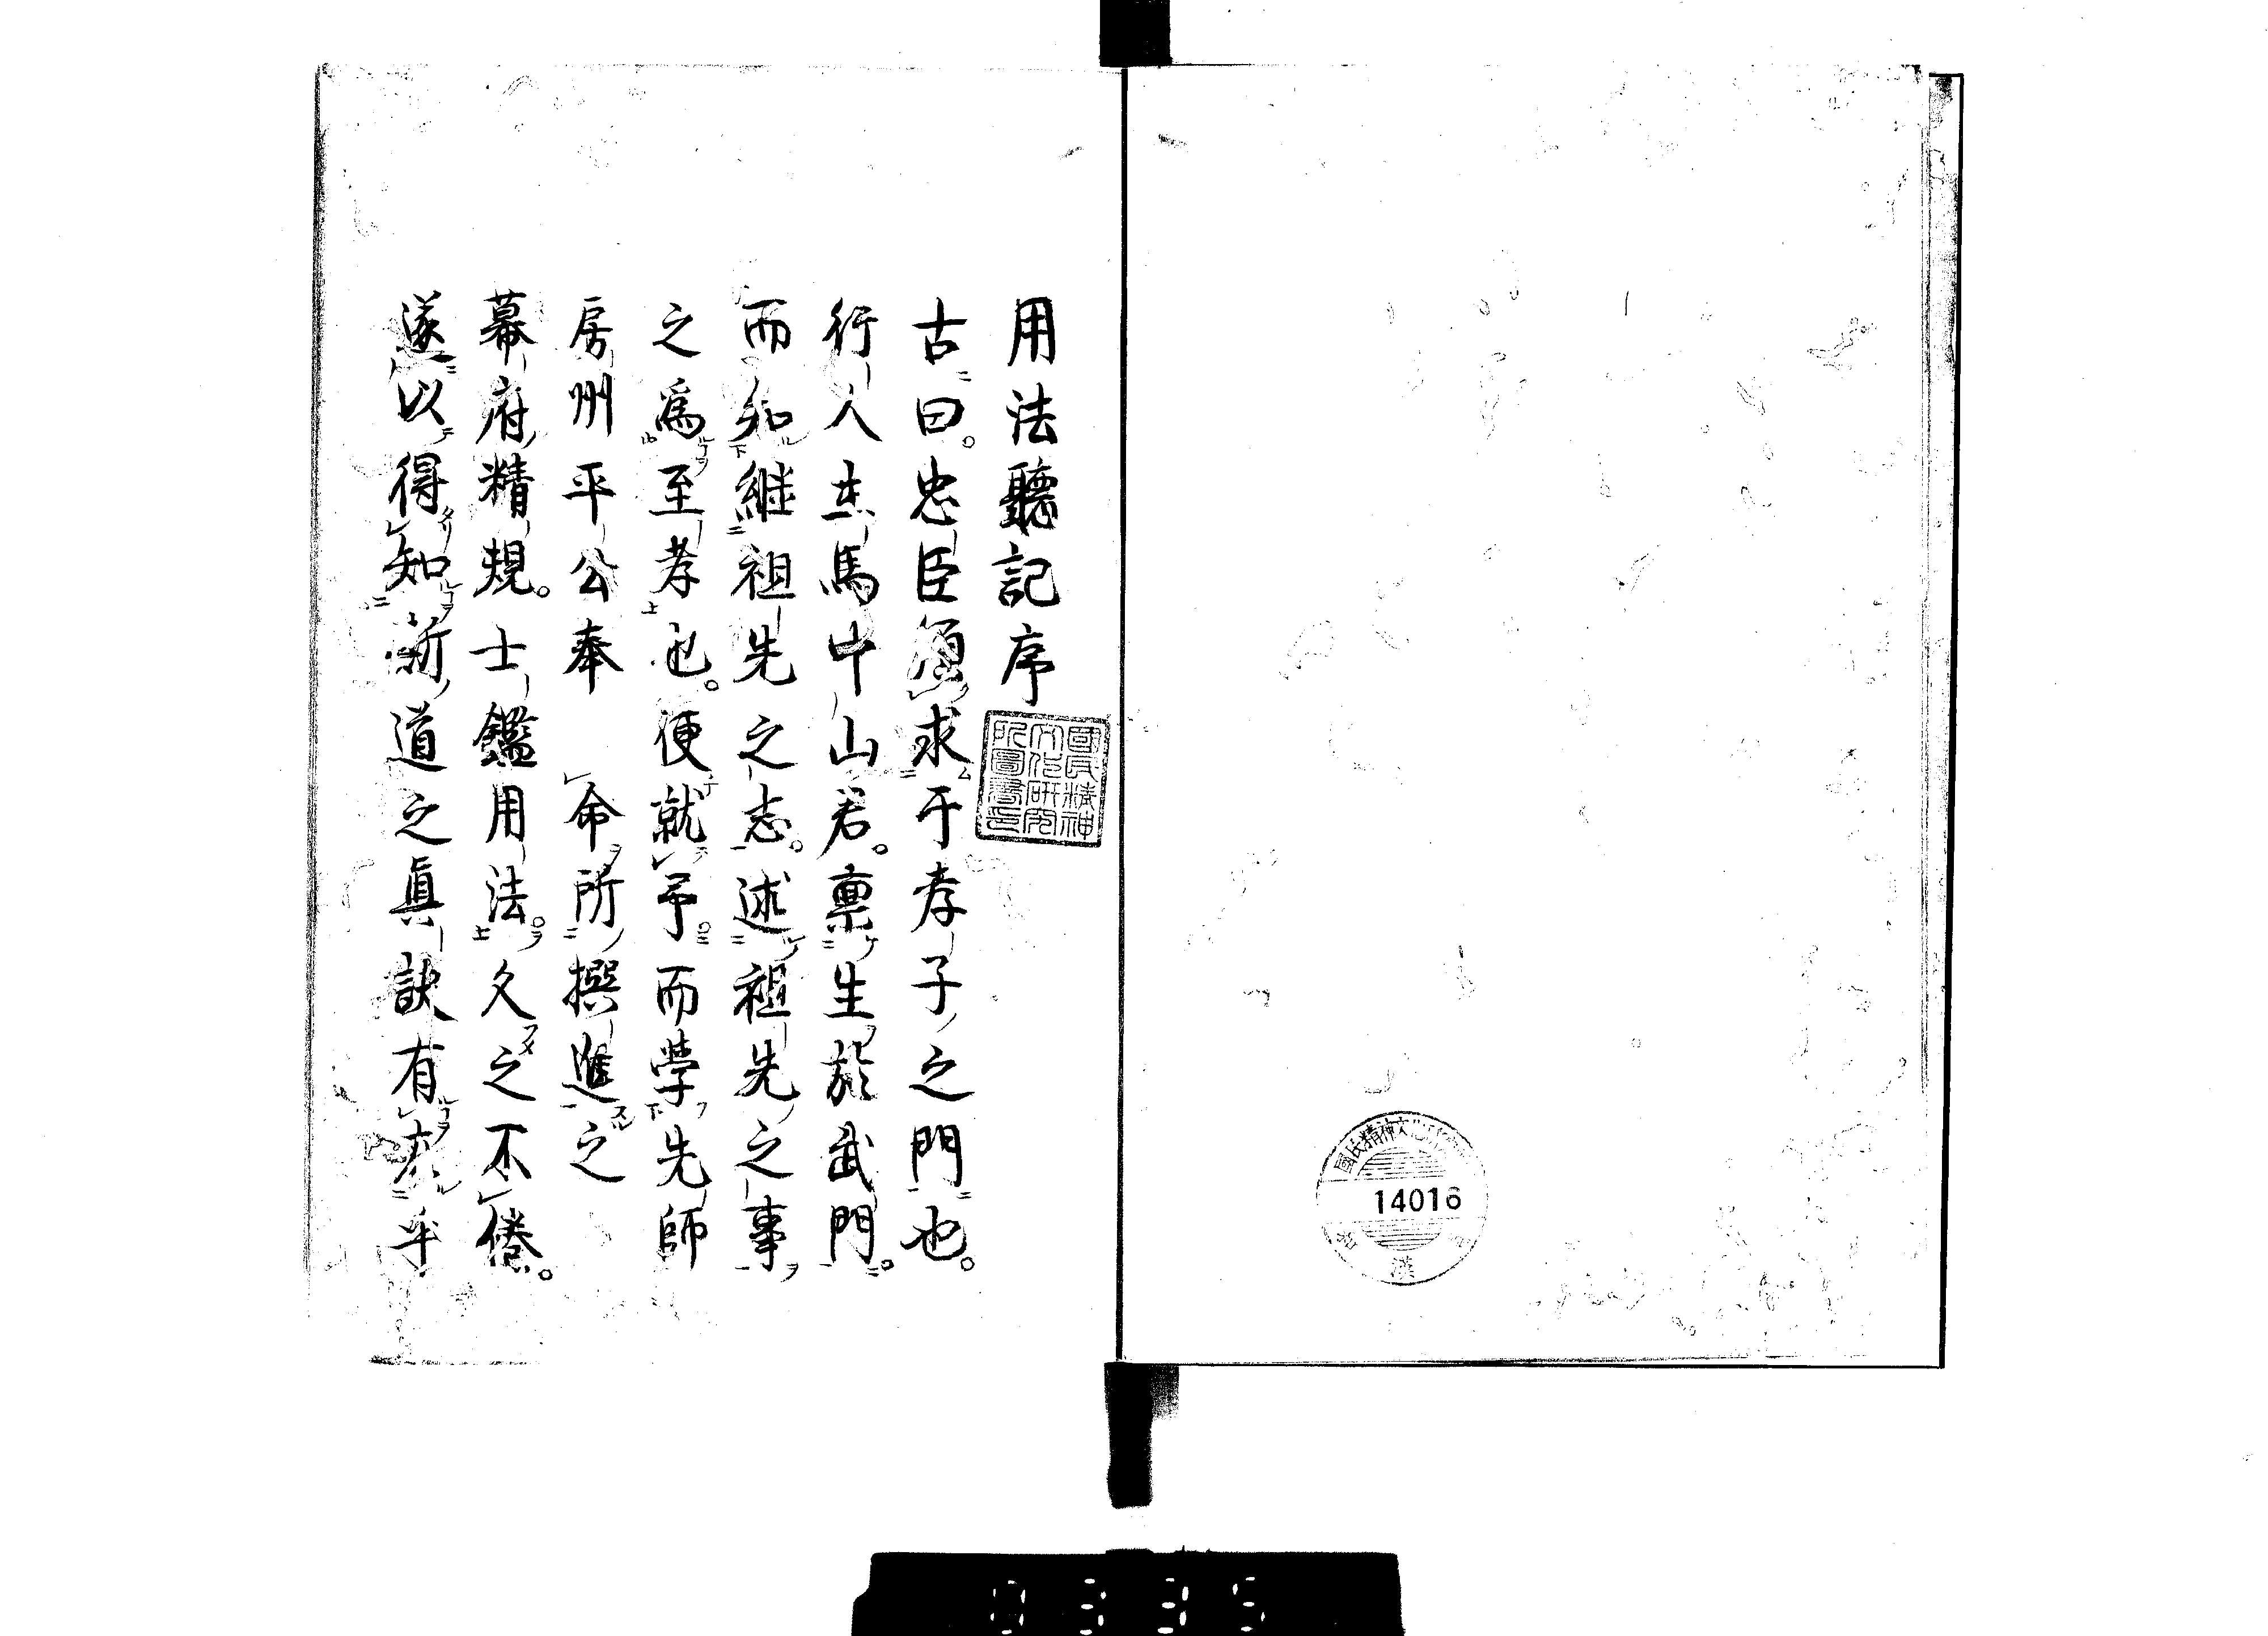 用法聽記序
古曰。忠臣須求于孝子之門也。
行人主馬中山君。稟生於武門。
而知継祖先之志。述祖先之事
之爲至孝也。便就予。而学先師
房州平公奉　命所撰進之
幕府精規。士鑑用法。久之不倦。
遂以得知斯道之眞訣有在乎
國民精神
文化研究
所圖書印
國民精神文化
14016